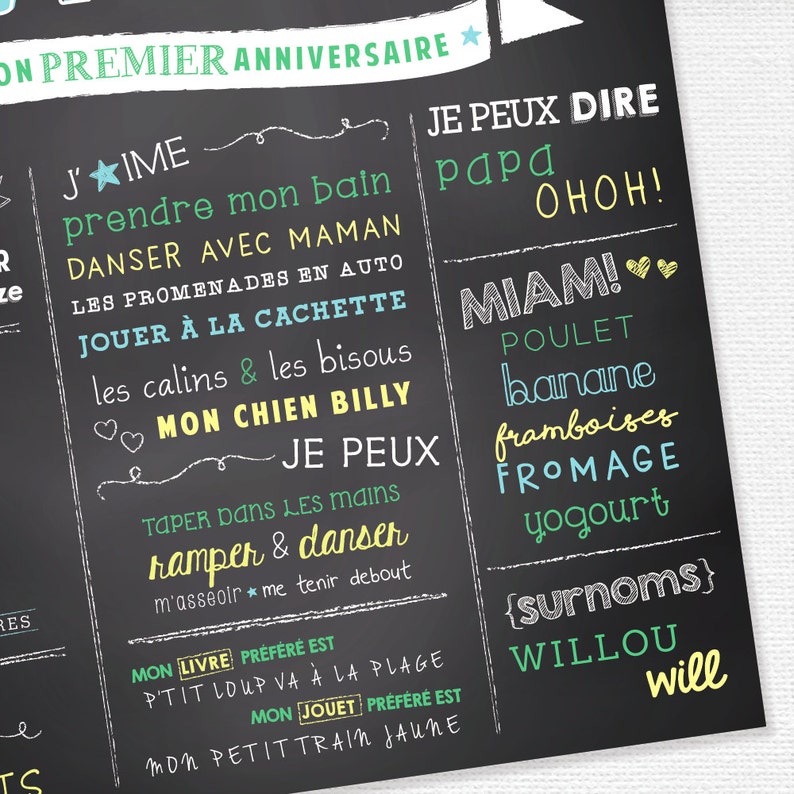 ON PREMIER ANNIVERSAIRE
R
ze
RES
TS
J'AIME
prendre mon bain
DANSER AVEC MAMAN
LES PROMENADES EN AUTO
JOUER À LA CACHETTE
les calins & les bisous
MON CHIEN BILLY
JE PEUX
TAPER DANS LES MAINS
ramper & danser
m'asseoir me tenir debout
MON LIVRE PRÉFÉRÉ EST
P'TIT LOUP VA À LA PLAGE
MON JOUET PRÉFÉRÉ EST
MON PETIT TRAIN JAUNE
JE PEUX DIRE
papa
OHOH!
MIAM!
POULET
banane
framboises
FROMAGE
yogourt
{surnoms}
WILLOU
will